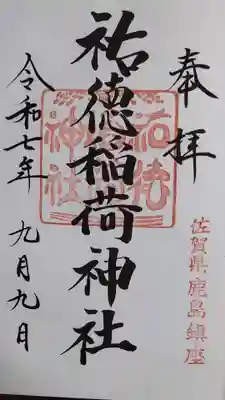 奉拝
佐賀県鹿島鎮座
祐徳稲荷神社
令和七年 九月九日